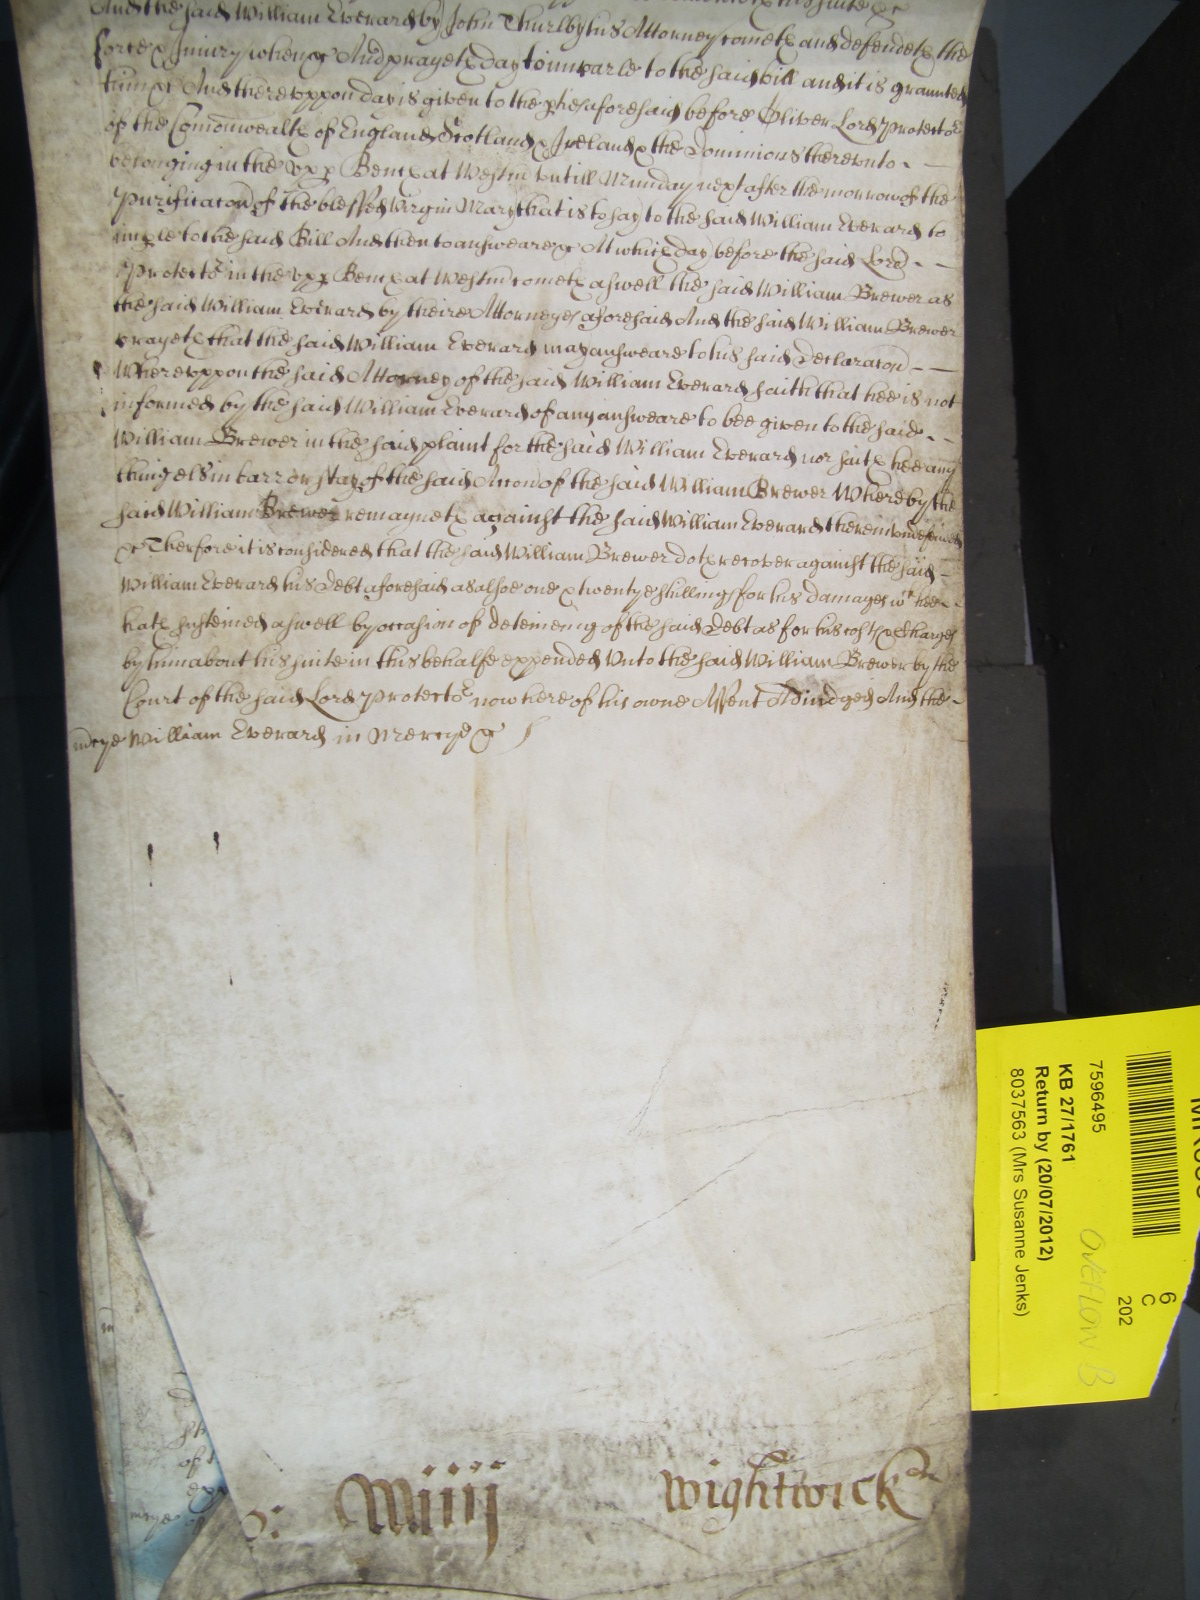 And the said William Everard by John Thurlby his Attorney cometh and defendeth the
force & Injury when &c And prayeth day to imparle to the said bill and it is graunted
him &c And thereuppon day is given to the pties aforesaid before Oliver Lord Protector
of the Comonwealth of England Scotland & Ireland & the Dominions thereunto - -
belonging in the upp Bench at Westm untill Munday next after the morrow of the
Purificacon of the blessed Virgin Mary that is to say to the said William Everard to
imple to the said Bill And then to answeare &c At which day before the said Lord - -
Protector in the upp Bench at Westm cometh aswell the said William Brewer as
the said William Everard by theire Attorneyes aforesaid And the said William Brewer
prayeth that the said William Everard may answeare to his said Declaracon - -
Whereuppon the said Attorney of the said William Everard saith that hee is not
informed by the said William Everard of any answeare to bee given to the said - -
William Brewer in the said plaint for the said William Everard nor saith hee any
thing els in barr or stay of the said Accon of the said William Brewer Whereby the
said William Brewer remayneth against the said William Everard therein undefended
&c Therfore it is considered that the said William Brewer doth recover against the said -
William Everard his Debt aforesaid as alsoe one & twentye shillings for his damages wch hee -
hath susteined aswell by occasion of deteineing of the said Debt as for his costs & Charges
by him about his suite in this behalfe expended Unto the said William Brewer by the
Court of the said Lord Protector now here of his owne Assent Adiudged And the -
mcye William Everard in Mercye &c
Wightwick
7596495
KB 27/1761
Return by (20/07/2012)
8037563 (Mrs Susanne Jenks)
OVERFLOW B
6
C
202